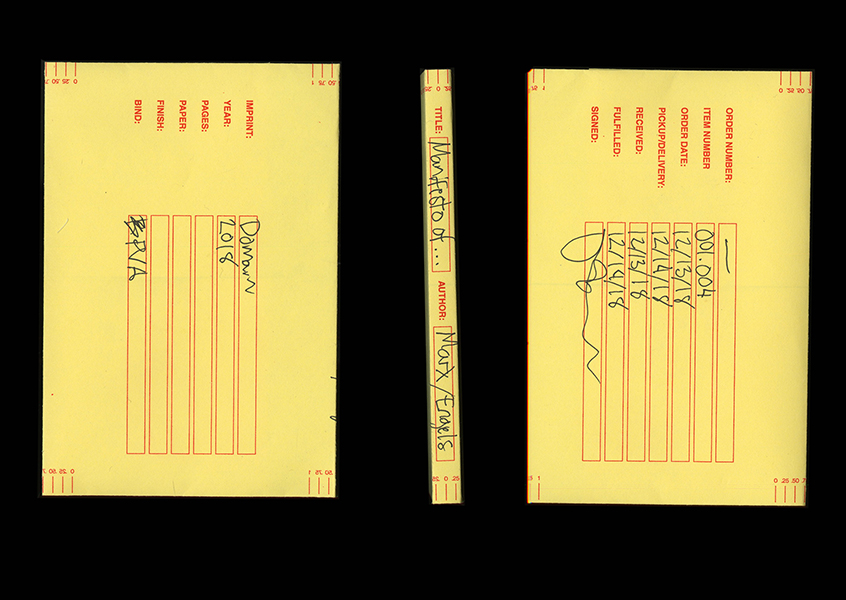 IMPRINT: Domain
YEAR: 2018
PAGES:
PAPER:
FINISH:
BIND: PVA
TITLE: Manifesto of ... AUTHOR: Marx/Engels
ORDER NUMBER: —
ITEM NUMBER 001.004
ORDER DATE: 12/13/18
PICKUP/DELIVERY: 12/14/18
RECEIVED: 12/13/18
FULFILLED: 12/14/18
SIGNED: